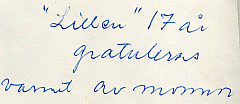 "Lillen" 17 år
gratuleras
varmt av mormor